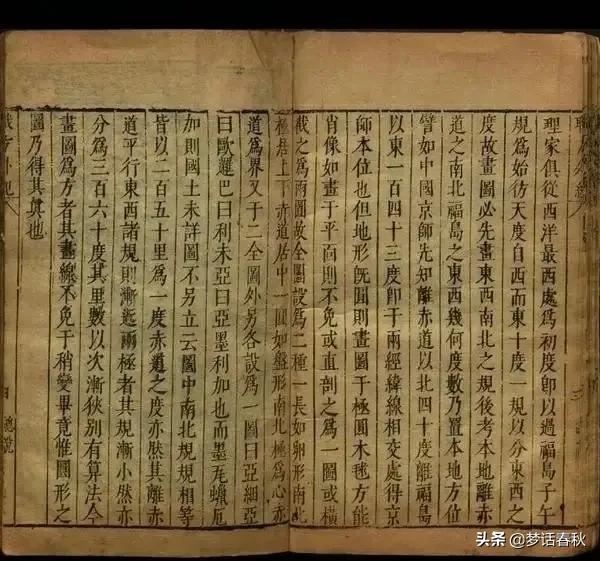 理家俱從西洋最西處爲初度卽以過福島子午
規爲始彷天度自西而東十度一規以分東西之
度故畫圖必先畫東西南北之規後考本地離赤
道之南北福島之東西幾何度數乃置本地方位
譬如中國京師先知離赤道以北四十度離福島
以東一百四十三度卽于兩經緯線相交處得京
師本位也但地形旣圓則畫圖于極圓木毬方能
肖像如畫于平面則不免或直剖之爲一圖或橫
截之爲兩圖故全圖設爲二種一長如卵形南北
極居上下赤道居中一圓如盤形南北極爲心赤
道爲界又于二全圖外另各設爲一圖曰亞細亞
曰歐邏巴曰利未亞曰亞墨利加也而墨瓦蠟厄
加則國土未詳圖不另立云圖中南北規規相等
皆以二百五十里爲一度赤道之度亦然其離赤
道平行東西諸規則漸近兩極者其規漸小然亦
分爲三百六十度其里數以次漸狹别有算法今
畫圖爲方者其畫線不免于稍變畢竟惟圓形之
圖乃得其眞也
總說
头条 @梦话春秋